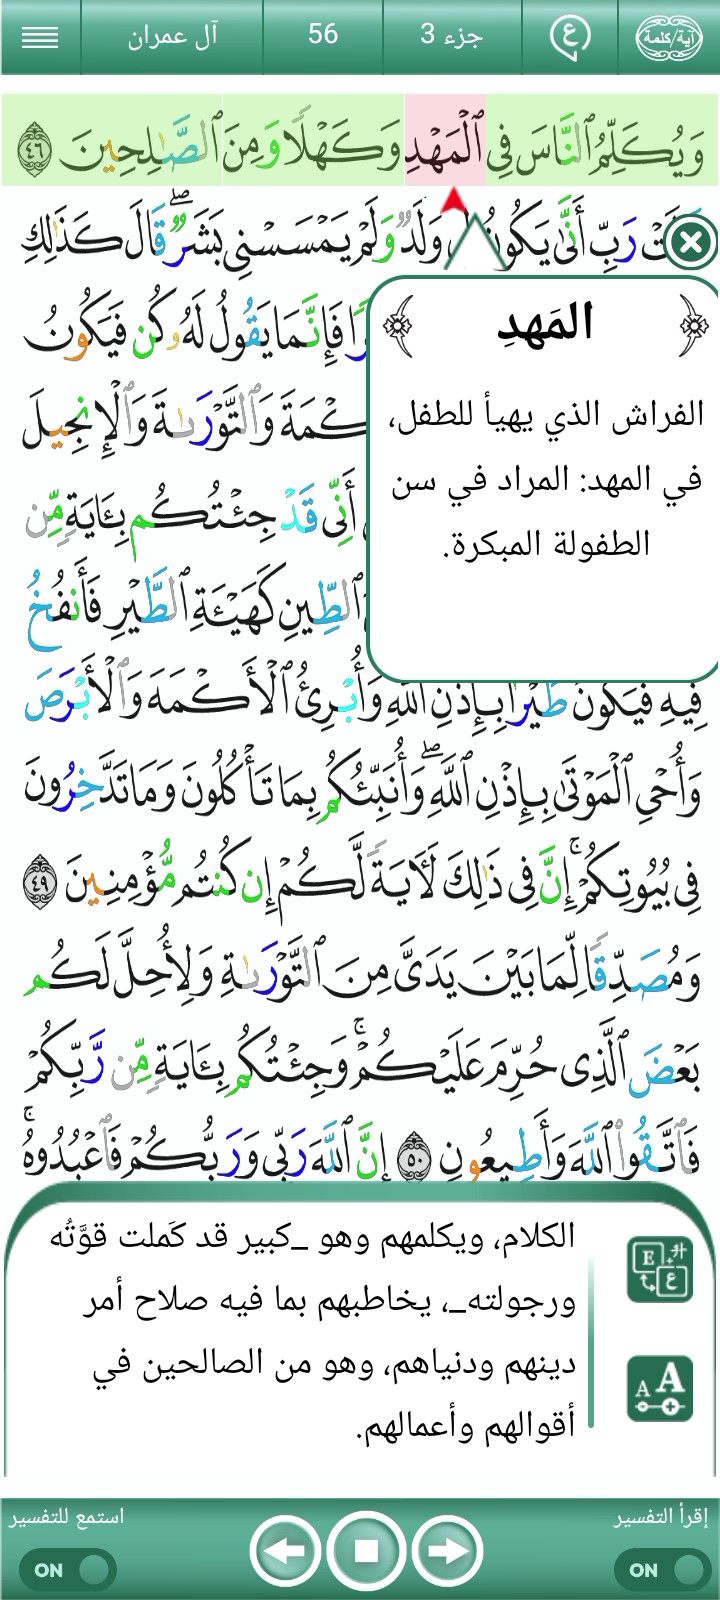 آية/كلمة
ع
جزء 3
56
آل عمران
وَيُكَلِّمُ ٱلنَّاسَ فِى ٱلْمَهْدِ وَكَهْلًا وَمِنَ ٱلصَّـٰلِحِينَ ٤٦
رَبِّ أَنَّىٰ يَكُونُ وَلَدٌ وَلَمْ يَمْسَسْنِى بَشَرٌ ۖ قَالَ كَذَٰلِكِ
فَإِنَّمَا يَقُولُ لَهُۥ كُن فَيَكُونُ
وَٱلتَّوْرَىٰةَ وَٱلْإِنجِيلَ
أَنِّى قَدْ جِئْتُكُم بِـَٔايَةٍ مِّن
ٱلطِّينِ كَهَيْـَٔةِ ٱلطَّيْرِ فَأَنفُخُ
فِيهِ فَيَكُونُ طَيْرًۢا بِإِذْنِ ٱللَّهِ وَأُبْرِئُ ٱلْأَكْمَهَ وَٱلْأَبْرَصَ
وَأُحْىِ ٱلْمَوْتَىٰ بِإِذْنِ ٱللَّهِ ۖ وَأُنَبِّئُكُم بِمَا تَأْكُلُونَ وَمَا تَدَّخِرُونَ
فِى بُيُوتِكُمْ ۚ إِنَّ فِى ذَٰلِكَ لَـَٔايَةً لَّكُمْ إِن كُنتُم مُّؤْمِنِينَ ٤٩
وَمُصَدِّقًا لِّمَا بَيْنَ يَدَىَّ مِنَ ٱلتَّوْرَىٰةِ وَلِأُحِلَّ لَكُم
بَعْضَ ٱلَّذِى حُرِّمَ عَلَيْكُمْ ۚ وَجِئْتُكُم بِـَٔايَةٍ مِّن رَّبِّكُمْ
فَٱتَّقُوا۟ ٱللَّهَ وَأَطِيعُونِ ٥٠ إِنَّ ٱللَّهَ رَبِّى وَرَبُّكُمْ فَٱعْبُدُوهُ ۚ
المَهدِ
الفراش الذي يهيأ للطفل،
في المهد: المراد في سن
الطفولة المبكرة.
الكلام، ويكلمهم وهو _كبير قد كَملت قوَّتُه
ورجولته_، يخاطبهم بما فيه صلاح أمر
دينهم ودنياهم، وهو من الصالحين في
أقوالهم وأعمالهم.
E ع
A A
إقرأ التفسير
ON
استمع للتفسير
ON